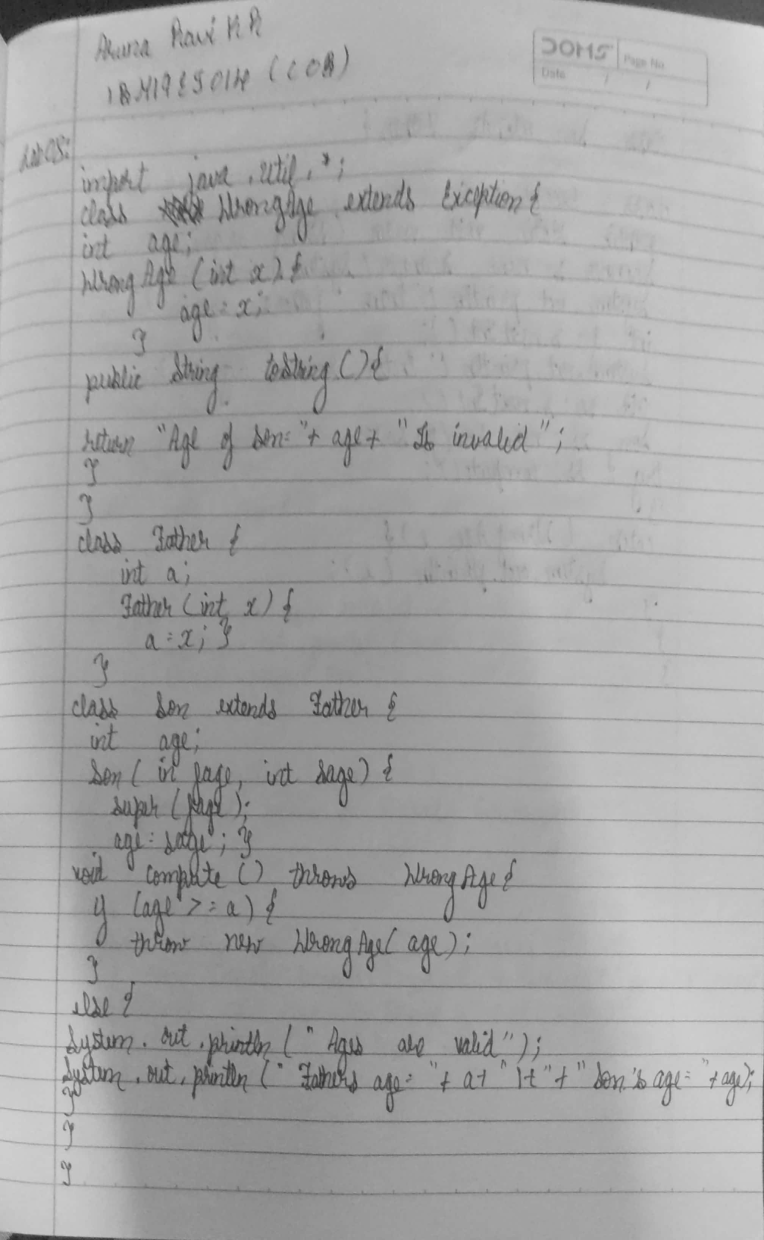 Aruna Ravi K R
1BM19ES014 (COB)
DOMS
Page No.
Date / /
Lab 08:
import java.util.*;
class WrongAge extends Exception{
int age;
WrongAge (int x) {
age = x;
}
public String toString () {
return "Age of Son= "+ age + " Is invalid ";
}
}
class Father {
int a;
Father (int x) {
a = x; }
}
class Son extends Father {
int age;
Son ( in fage, int sage) {
super (fage);
age = sage ; }
void compute () throws WrongAge {
if (age >= a) {
throw new WrongAge( age);
}
else {
System.out.println (" Ages are valid");
System.out.println (" Fathers age= "+ a+ " \t "+ " Son's age= "+age);
}
}
}